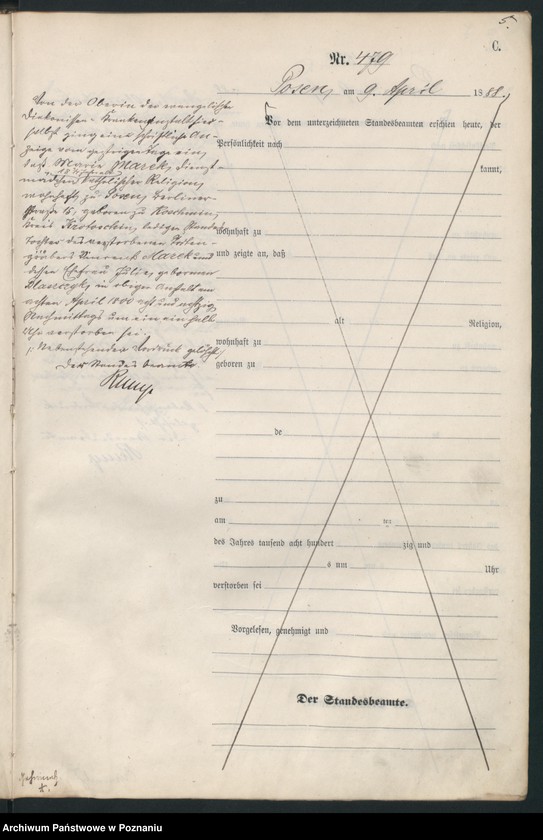 5.
C.
Nr. 479
Posen, am 9. April 1888.
Von der Oberin der evangelischen
Diakonissen-Krankenanstalt hier-
selbst ging eine schriftliche An-
zeige vom gestrigen Tage ein,
daß Marie Marek, Dienst-
mädchen, katholischer Religion,
wohnhaft zu Posen, Berliner-
straße 15, geboren zu Koschmin,
Kreis Krotoschin, ledigen Standes
Tochter des verstorbenen
Marek und
dessen Ehefrau Julie, geborenen
in obiger Anstalt am
achten April 1800 acht und achtzig
Nachmittags um ein ein halb
Uhr verstorben sei.
/: Nebenstehender Vordruck gelöscht :/
Der Standesbeamte
Vor dem unterzeichneten Standesbeamten erschien heute, der
Persönlichkeit nach
kannt,
wohnhaft zu
und zeigte an, daß
alt Religion,
wohnhaft zu
geboren zu
de
zu
am
des Jahres tausend acht hundert zig und
s um Uhr
verstorben sei
Vorgelesen, genehmigt und
Der Standesbeamte.
Archiwum Państwowe w Poznaniu